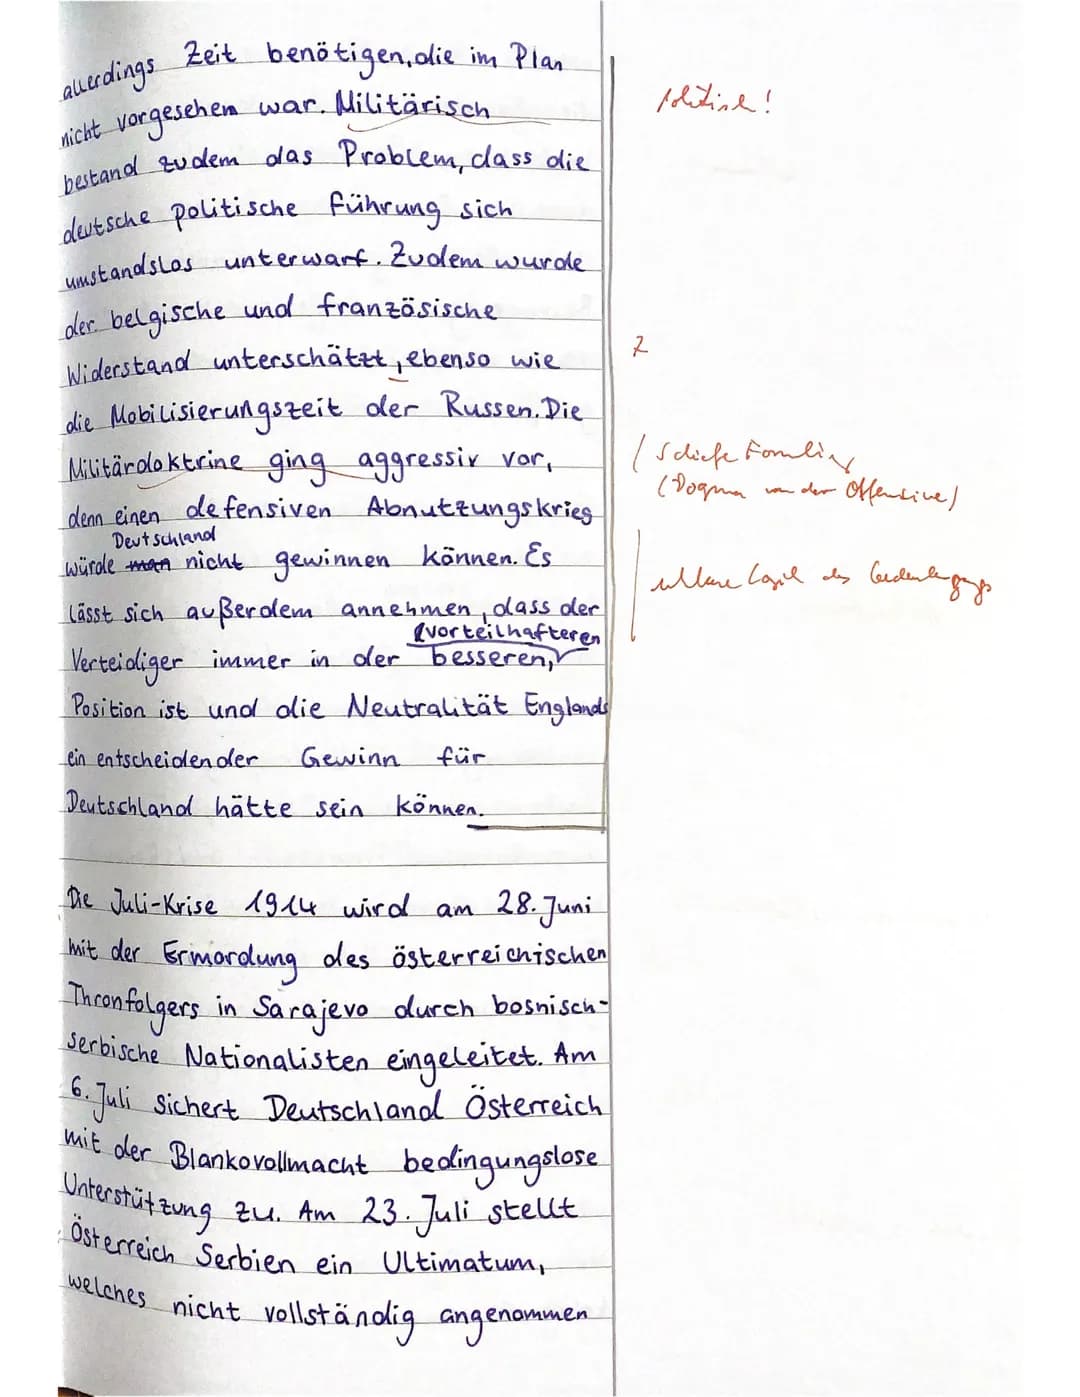 allerdings Zeit benötigen, die im Plan
nicht vorgesehen war. Militärisch
politisch!
bestand zudem das Problem, dass die
deutsche politische Führung sich
umstandslos unterwarf. Zudem wurde
der belgische und französische
Widerstand unterschätzt, ebenso wie
Z
die Mobilisierungszeit der Russen. Die
Militärdoktrine ging aggressiv vor,
(Dogma von der Offensive)
denn einen defensiven Abnutzungskrieg
Deutschland
würde man nicht gewinnen können. Es
unklare Logik des Gedankengangs
lässt sich außerdem annehmen, dass der
vorteilhafteren
Verteidiger immer in der besseren,
Position ist und die Neutralität Englands
ein entscheidender Gewinn für
Deutschland hätte sein können.
Die Juli-Krise 1914 wird am 28. Juni
mit der Ermordung des österreichischen
Thronfolgers in Sarajevo durch bosnisch-
serbische Nationalisten eingeleitet. Am
6. Juli sichert Deutschland Österreich
mit der Blankovollmacht bedingungslose
Unterstützung zu. Am 23. Juli stellt
Österreich Serbien ein Ultimatum,
welches nicht vollständig angenommen